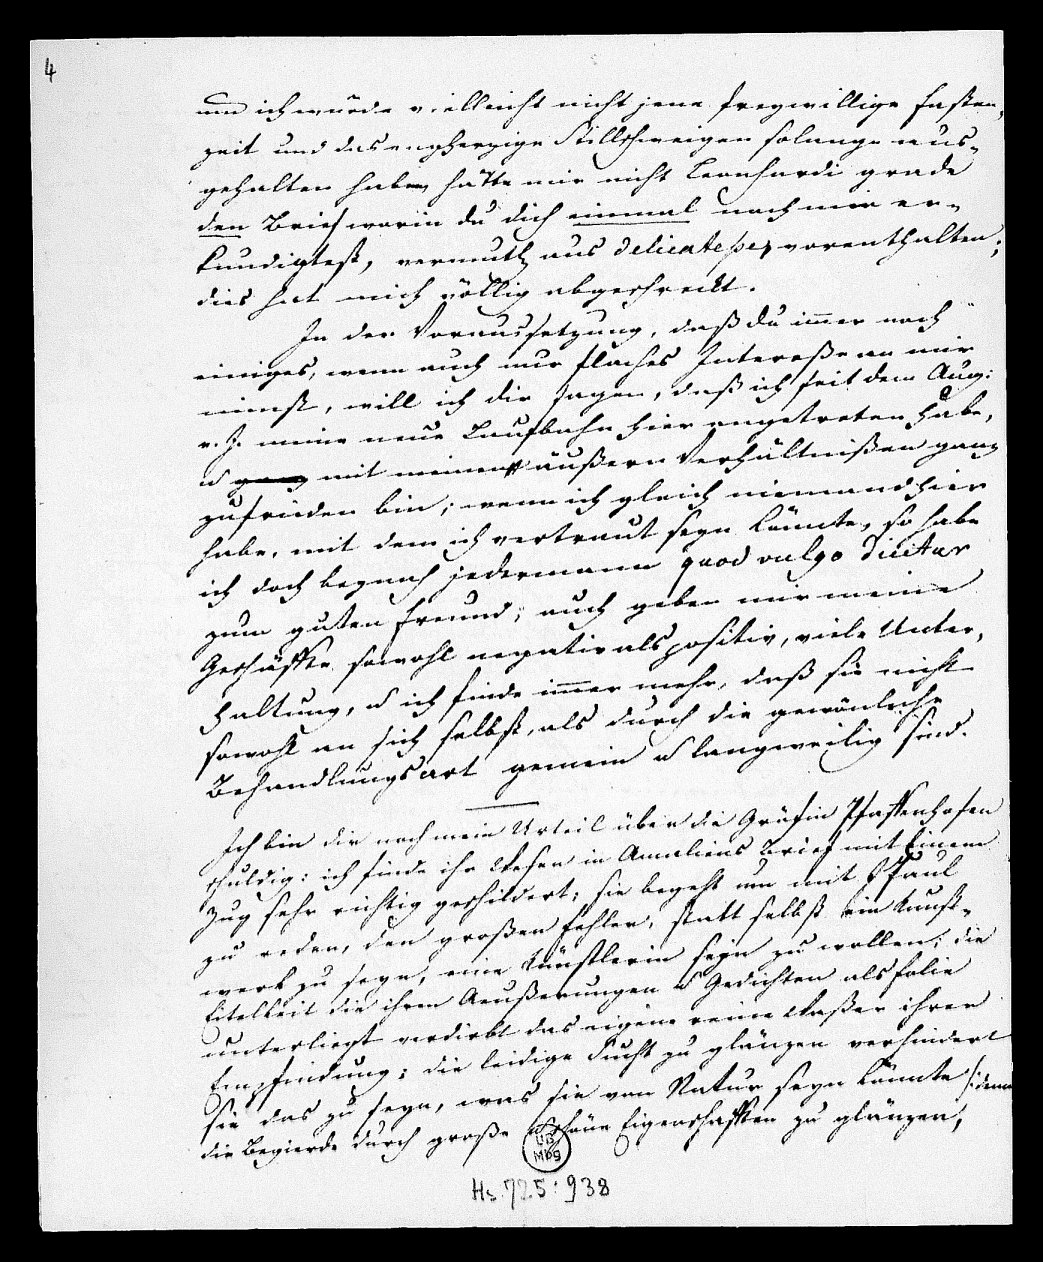 4
und ich würde vielleicht nicht jene freywillige Fasten,
zeit und das engherzige Stillschweigen solange aus-
gehalten haben, hätte mir nicht Leonhardi grade
den Brief worin du dich einmal nach mir er-
kundigtest, vermuthl. aus delicatesse, vorenthalten;
dies hat mich völlig abgeschreckt.
In der Voraussetzung, daß du immer noch
einiges, wenn auch nur flaches Interesse an mir
nimst, will ich dir sagen, daß ich seit dem Aug:
v. J. meine neue Laufbahn hier angetreten habe,
u ganz mit meinen äußern Verhältnißen ganz
zufrieden bin; wenn ich gleich niemand hier
habe, mit dem ich vertraut seyn könnte, so habe
ich doch beynah jedermann quod vulgo dicitur
zum guten Freund; auch geben mir meine
Geschäffte, sowohl negativ als positiv, viele Unter,
haltung, u ich finde immer mehr, daß sie nicht
sowohl an sich selbst, als durch die gewönliche
Behandlungsart gemein u langweilig sind.
Ich bin dir noch mein Urteil über die Gräfin Pfaffenhofen
schuldig: ich finde ihr Wesen in Amaliens Brief mit Einem
Zug sehr richtig geschildert; sie begeht um mit JPaul
zu reden, den großen Fehler, statt selbst ein Kunst-
werk zu seyn, eine Künstlerin seyn zu wollen; die
Eitelkeit die ihren Aeußerungen u Gedichten als Folie
unterliegt verdirbt das eigene reine Waßer ihrer
Empfindung; die leidige Sucht zu glänzen verhindert
sie das zu seyn, was sie von Natur seyn könnte /:denn
die Begierde durch große u schöne Eigenschafften zu glänzen,
UB
Mbg
Hs. 725:938